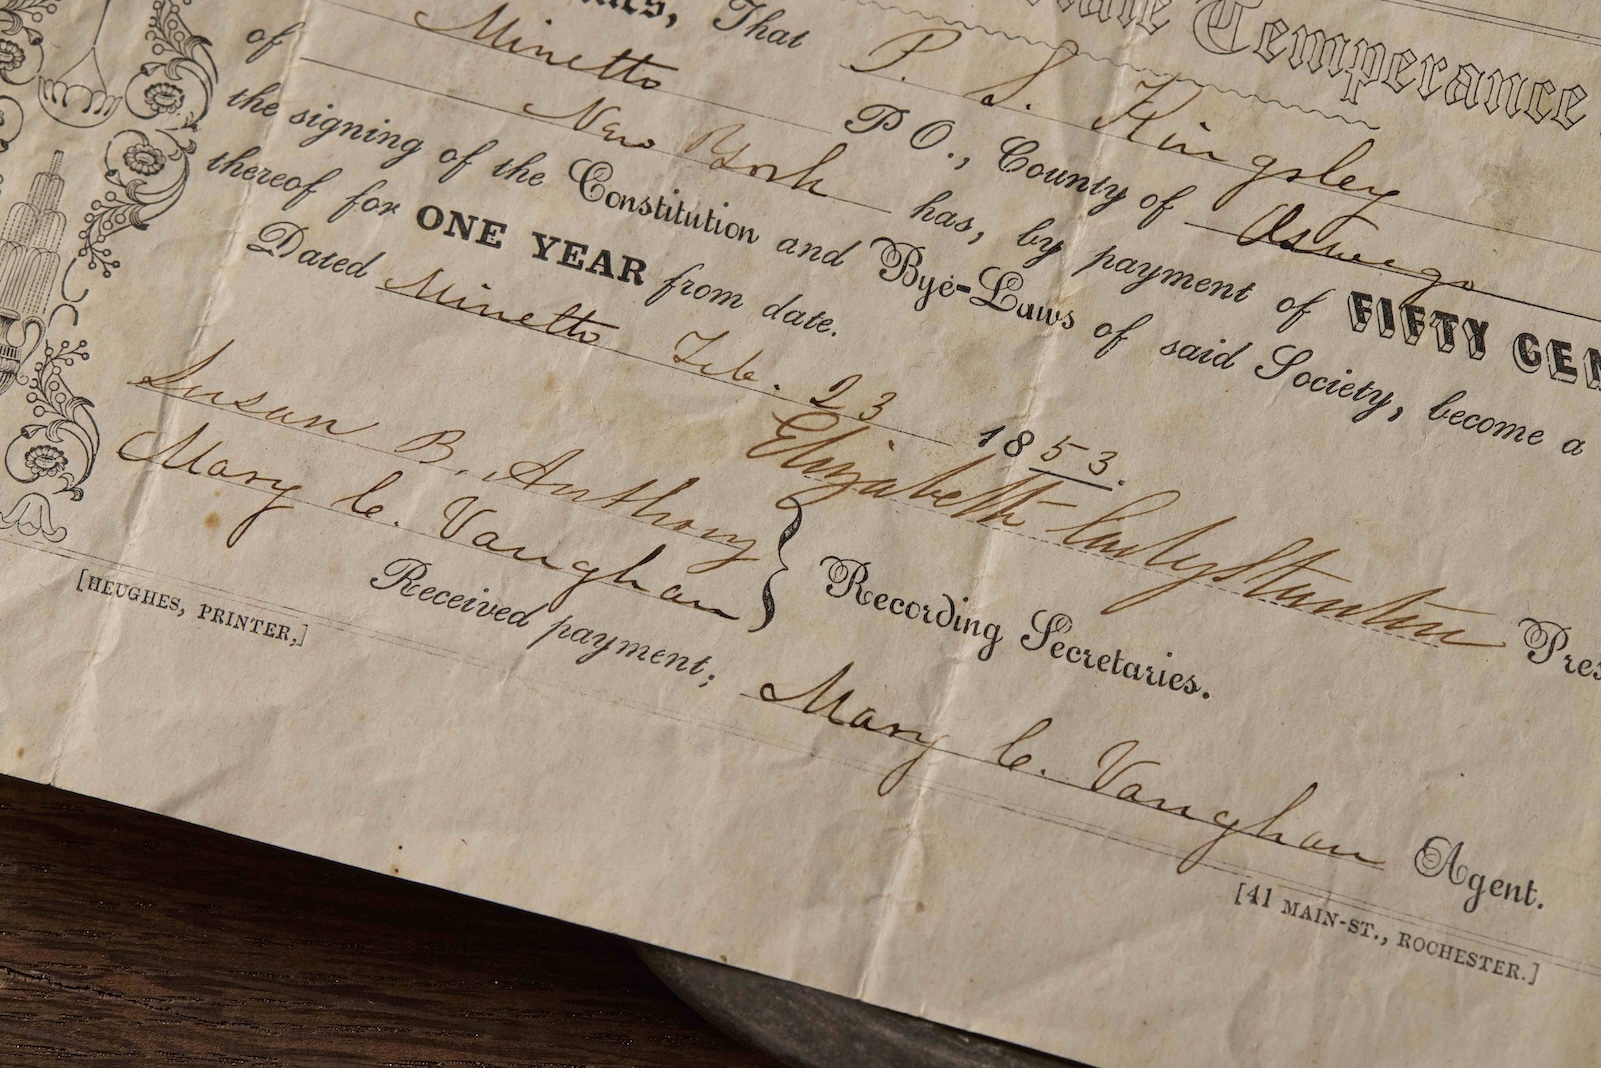 Temperance
That P. S. Kingsley
of Minetto P O., County of Oswego
New York has, by payment of FIFTY CEN
the signing of the Constitution and Bye-Laws of said Society, become a
thereof for ONE YEAR from date.
Dated Minetto Feb. 23 1853.
Elizabeth Cady Stanton Pres
Susan B. Anthony
Mary C. Vaughan } Recording Secretaries.
Received payment; Mary C. Vaughan Agent.
[HEUGHES, PRINTER,] [41 MAIN-ST., ROCHESTER.]